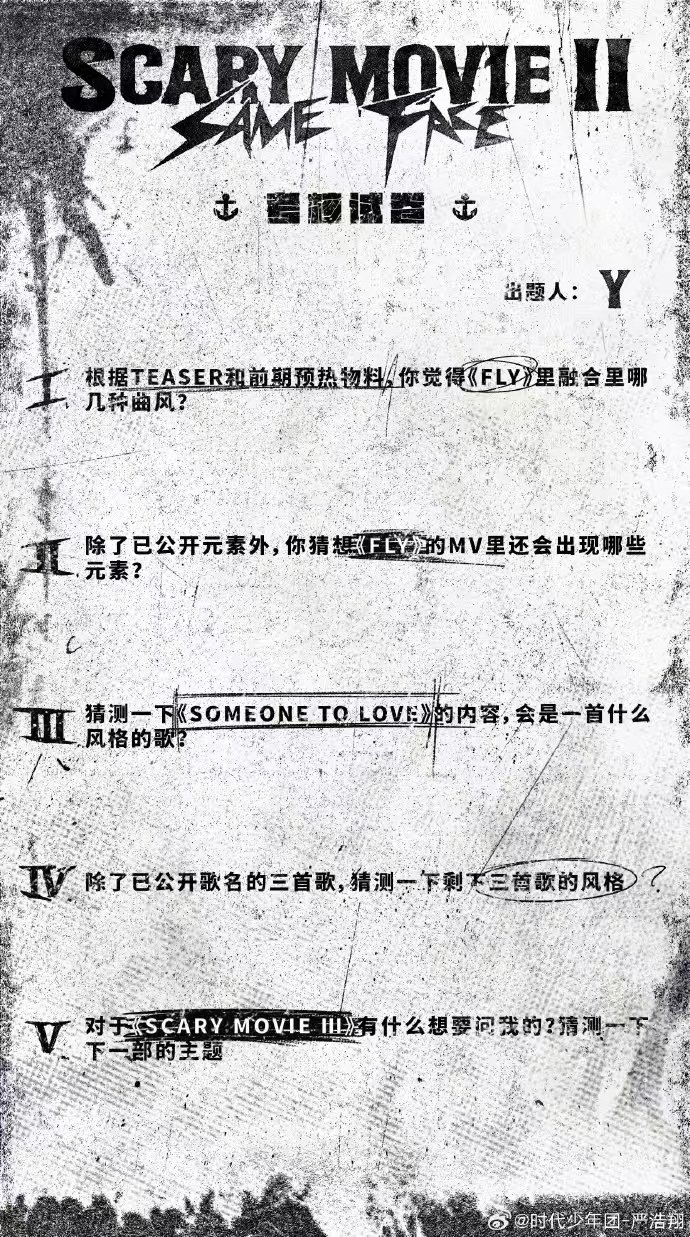 SCARY MOVIE II
SAME FACE
出题人: Y
I 根据TEASER和前期预热物料,你觉得《FLY》里融合里哪
几种曲风?
II 除了已公开元素外,你猜想《FLY》的MV里还会出现哪些
元素?
III 猜测一下《SOMEONE TO LOVE》的内容,会是一首什么
风格的歌?
IV 除了已公开歌名的三首歌,猜测一下剩下三首歌的风格 ?
V 对于《SCARY MOVIE III》有什么想要问我的?猜测一下
下一部的主题
@时代少年团-严浩翔